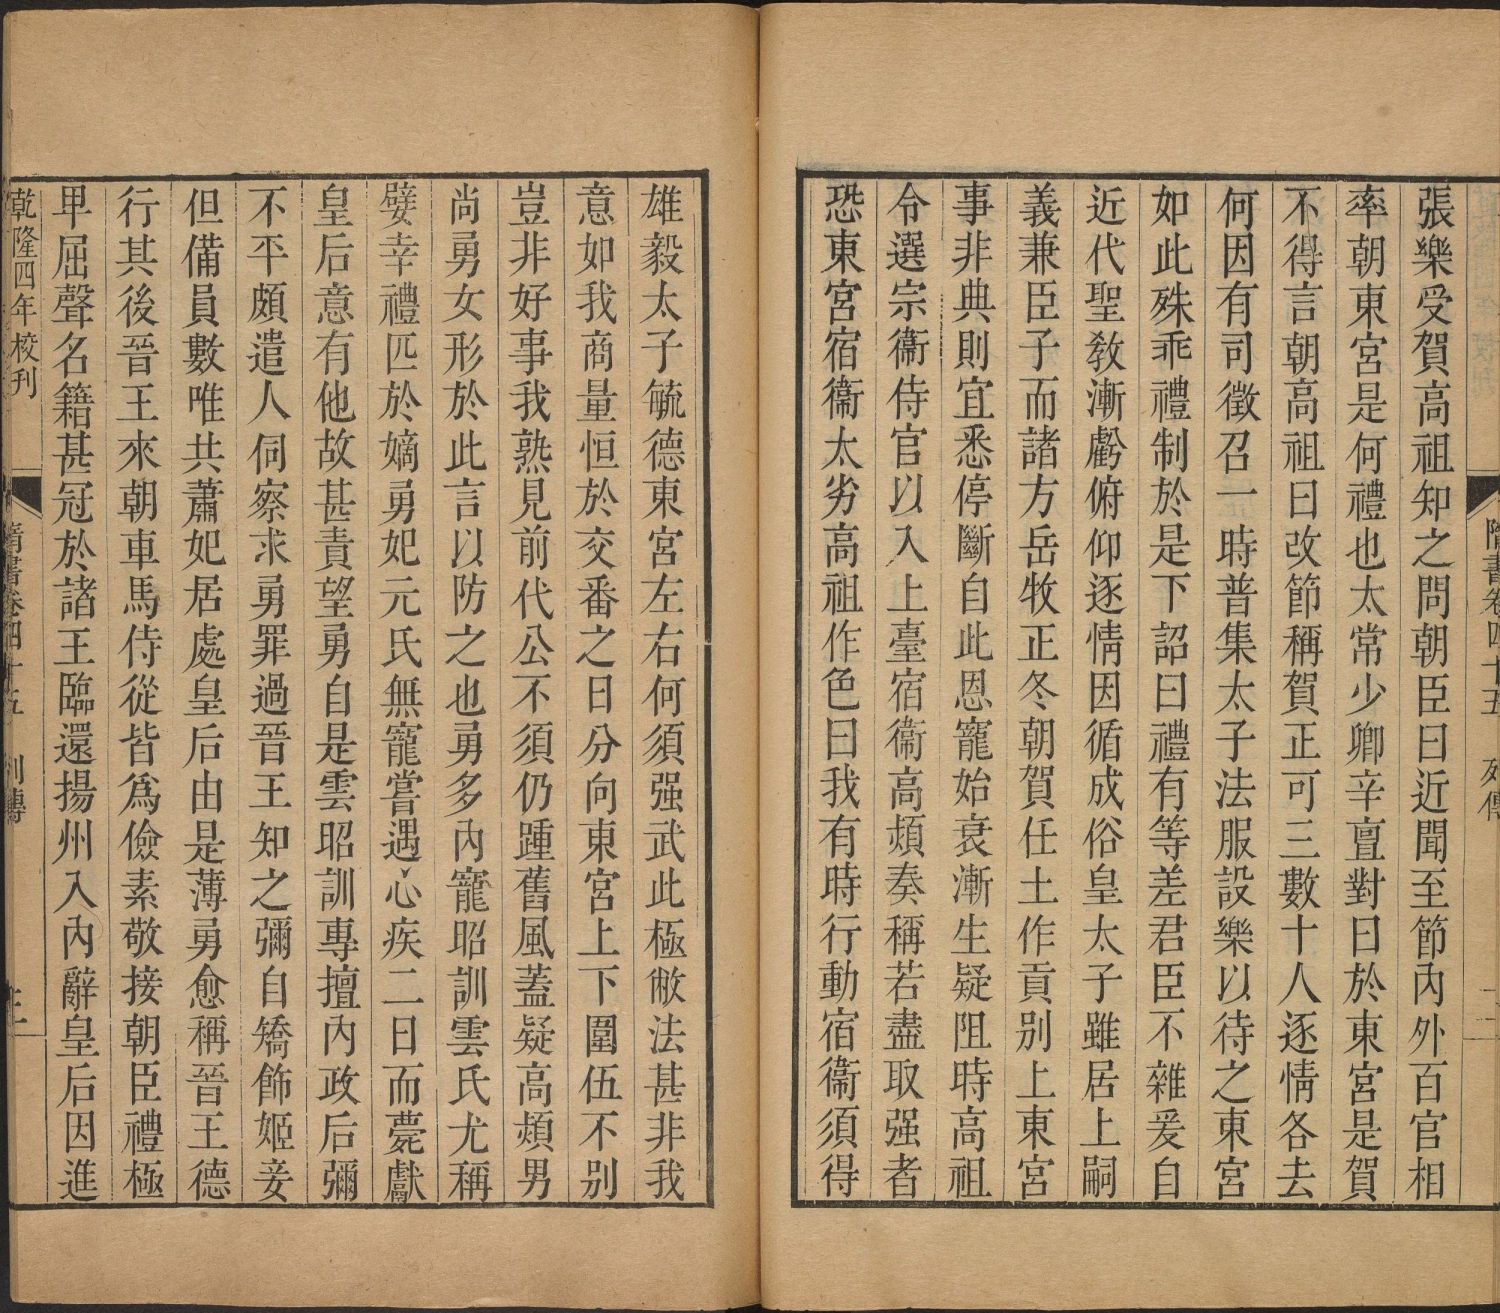 隋書卷四十五　列傳
張樂受賀高祖知之問朝臣曰近聞至節內外百官相
率朝東宮是何禮也太常少卿辛亶對曰於東宮是賀
不得言朝高祖曰改節稱賀正可三數十人逐情各去
何因有司徵召一時普集太子法服設樂以待之東宮
如此殊乖禮制於是下詔曰禮有等差君臣不雜爰自
近代聖敎漸虧俯仰逐情因循成俗皇太子雖居上嗣
義兼臣子而諸方岳牧正冬朝賀任土作貢別上東宮
事非典則宜悉停斷自此恩寵始衰漸生疑阻時高祖
令選宗衞侍官以入上臺宿衞高熲奏稱若盡取强者
恐東宮宿衞太劣高祖作色曰我有時行動宿衞須得
雄毅太子毓德東宮左右何須强武此極敝法甚非我
意如我商量恒於交番之日分向東宮上下團伍不別
豈非好事我熟見前代公不須仍踵舊風蓋疑高熲男
尚勇女形於此言以防之也勇多內寵昭訓雲氏尤稱
嬖幸禮匹於嫡勇妃元氏無寵嘗遇心疾二日而薨獻
皇后意有他故甚責望勇自是雲昭訓專擅內政后彌
不平頗遣人伺察求勇罪過晉王知之彌自矯飾姬妾
但備員數唯共蕭妃居處皇后由是薄勇愈稱晉王德
行其後晉王來朝車馬侍從皆爲儉素敬接朝臣禮極
卑屈聲名籍甚冠於諸王臨還揚州入內辭皇后因進
乾隆四年校刊　隋書卷四十五　列傳